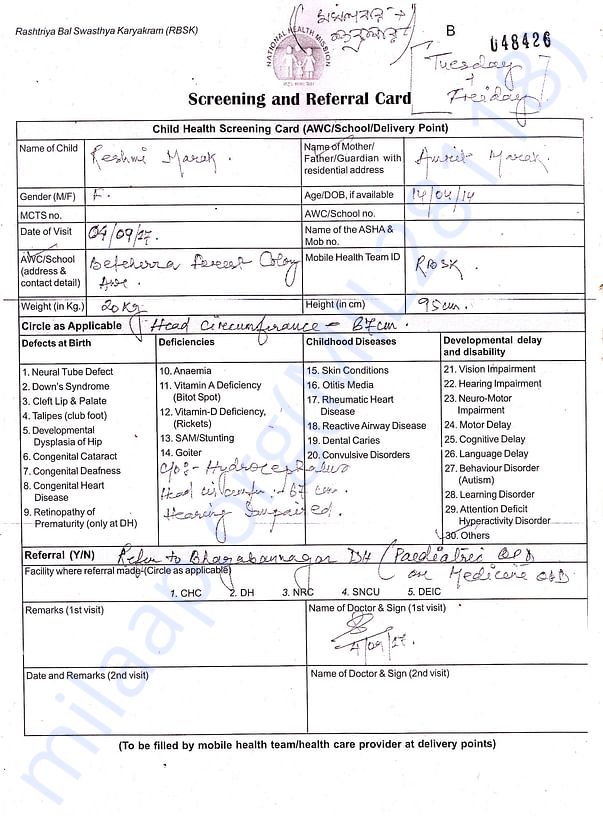 Rashtriya Bal Swasthya Karyakram (RBSK)
NATIONAL HEALTH MISSION
B
048426
Tuesday
+
Freiday
Screening and Referral Card
Child Health Screening Card (AWC/School/Delivery Point)
Name of Child Reshmi Marak.
Name of Mother/ Father/Guardian with residential address Amrit Marak.
Gender (M/F) F.
Age/DOB, if available 14/04/14
MCTS no.
AWC/School no.
Date of Visit 04/09/17.
Name of the ASHA & Mob no.
AWC/School (address & contact detail) Betcherra Forest Colony AWC
Mobile Health Team ID RBSK.
Weight (in Kg.) 20 Kg
Height (in cm) 95 cm.
Circle as Applicable Head Circumfirance - 67 cm.
Defects at Birth
1. Neural Tube Defect
2. Down's Syndrome
3. Cleft Lip & Palate
4. Talipes (club foot)
5. Developmental Dysplasia of Hip
6. Congenital Cataract
7. Congenital Deafness
8. Congenital Heart Disease
9. Retinopathy of Prematurity (only at DH)
Deficiencies
10. Anaemia
11. Vitamin A Deficiency (Bitot Spot)
12. Vitamin-D Deficiency, (Rickets)
13. SAM/Stunting
14. Goiter
C/O:- Hydrocephalus
Head circumfr. :- 67 cm.
Hearing Impaired.
Childhood Diseases
15. Skin Conditions
16. Otitis Media
17. Rheumatic Heart Disease
18. Reactive Airway Disease
19. Dental Caries
20. Convulsive Disorders
Developmental delay and disability
21. Vision Impairment
22. Hearing Impairment
23. Neuro-Motor Impairment
24. Motor Delay
25. Cognitive Delay
26. Language Delay
27. Behaviour Disorder (Autism)
28. Learning Disorder
29. Attention Deficit Hyperactivity Disorder
30. Others
Referral (Y/N) Refer to Bhagabannagar DH (Paediatric OPD
or Medicine OPD
Facility where referral made (Circle as applicable)
1. CHC 2. DH 3. NRC 4. SNCU 5. DEIC
Remarks (1st visit)
Name of Doctor & Sign (1st visit)
4/09/17.
Date and Remarks (2nd visit)
Name of Doctor & Sign (2nd visit)
(To be filled by mobile health team/health care provider at delivery points)